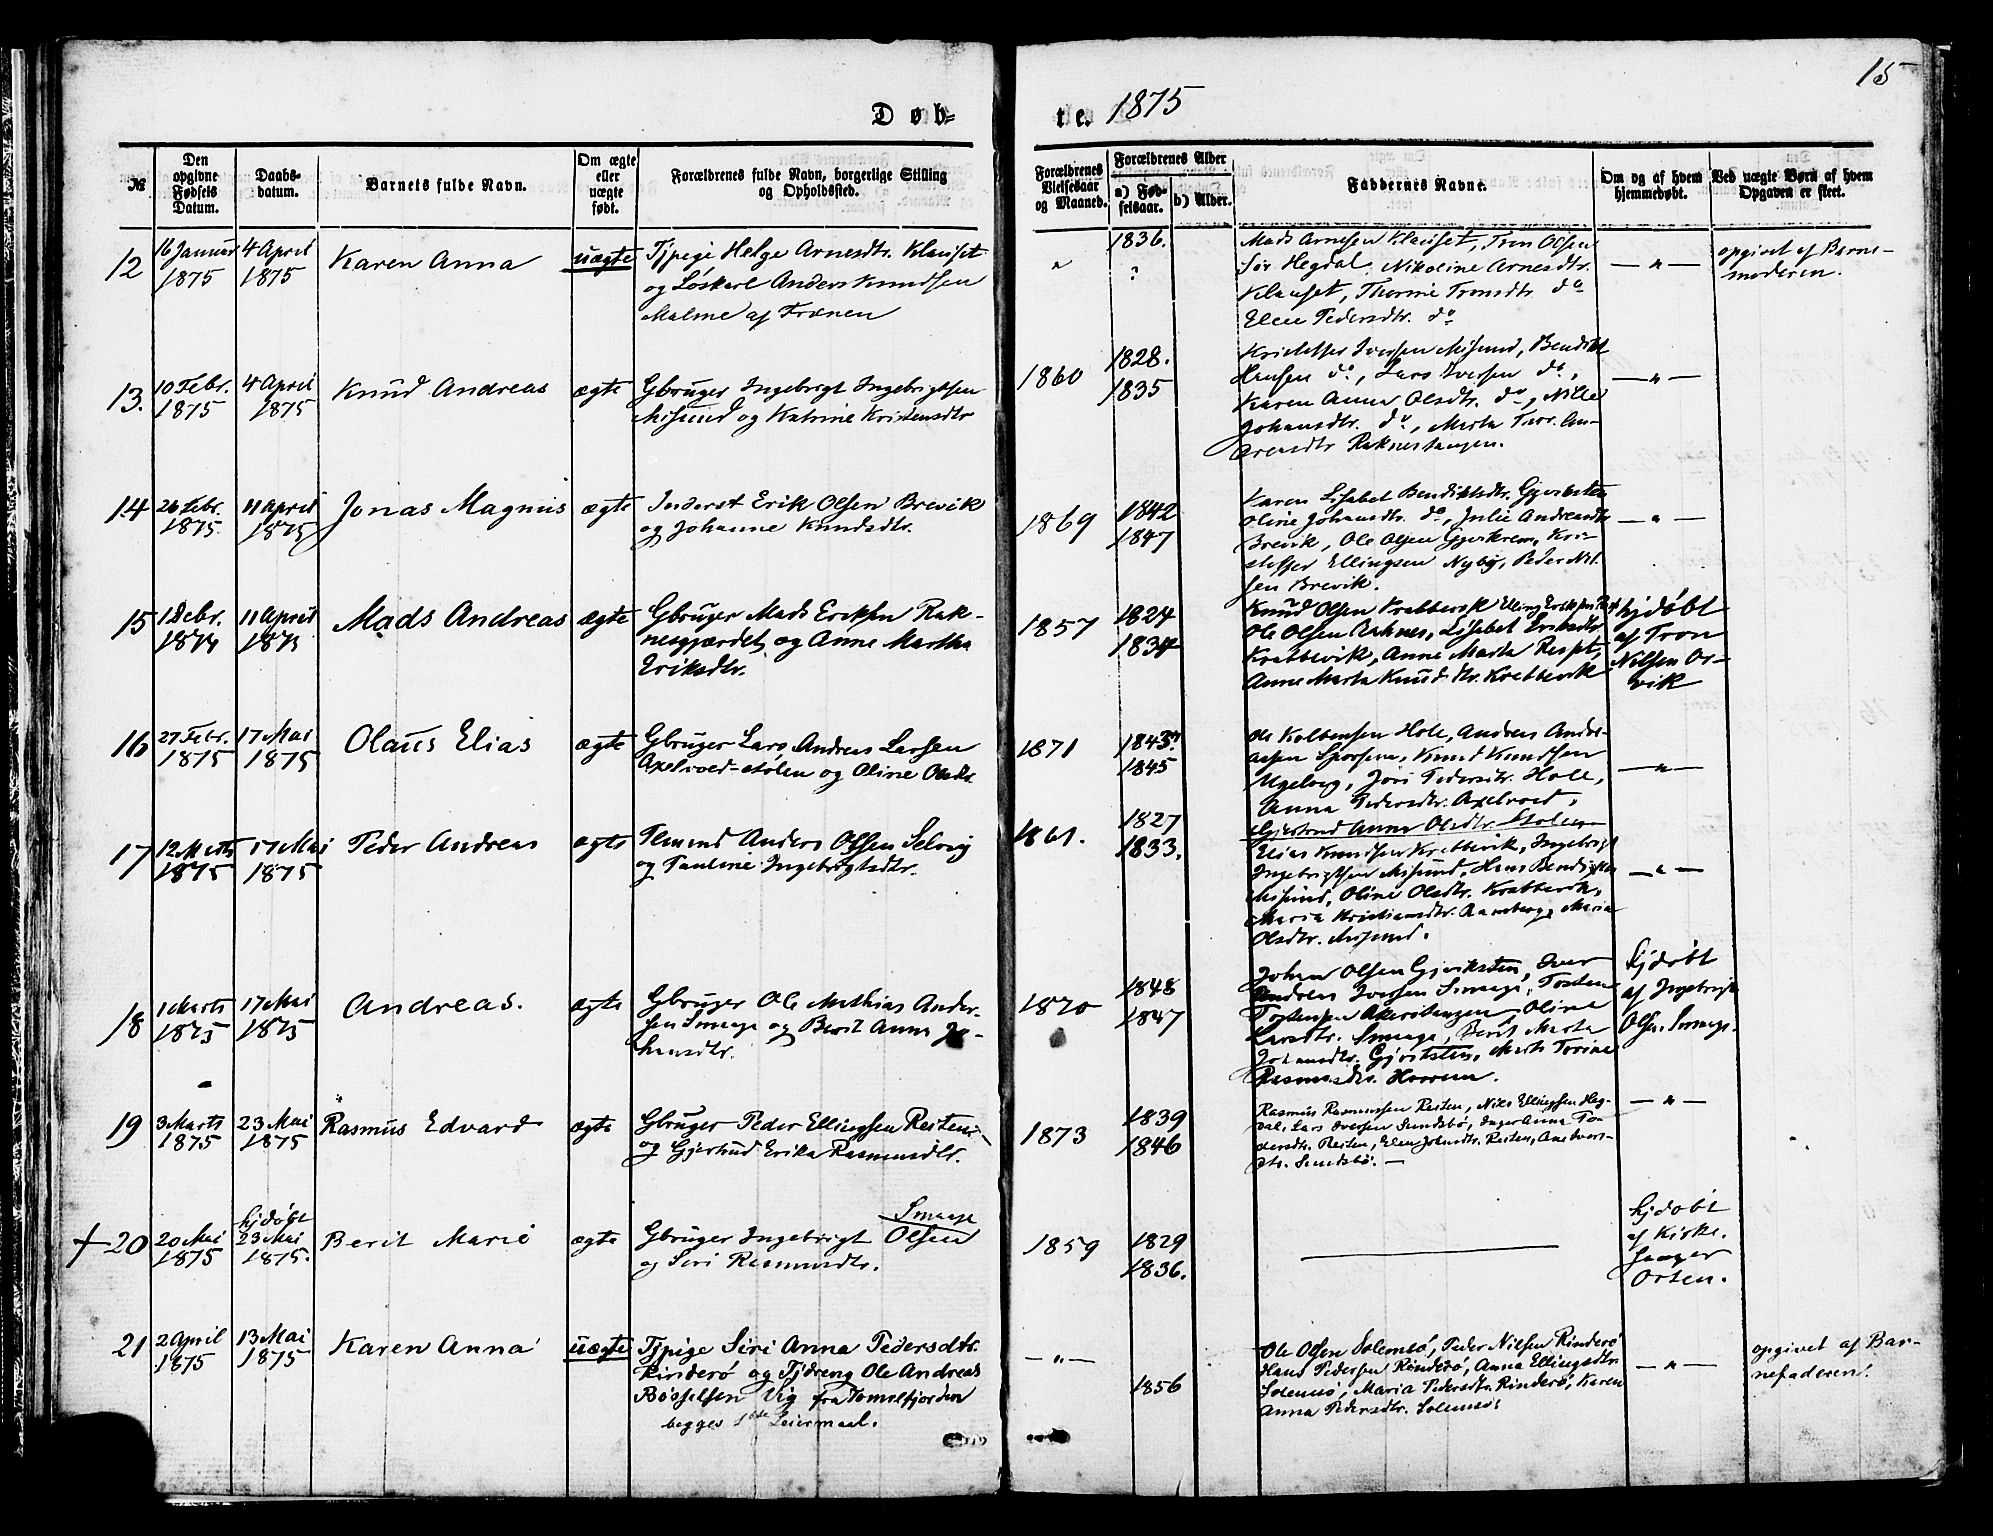 15
Døb=
te. 1875
№
Den opgivne Fødsels Datum.
Daabs-datum.
Barnets fulde Navn.
Om ægte eller uægte født.
Forældrenes fulde Navn, borgerlige Stilling og Opholdssted.
Forældrenes Vielsesaar og Maaned.
Forældrenes Alder
a) Fødselsaar.
b) Alder.
Faddernes Navne.
Om og af hvem hjemmedøbt.
Ved uægte Børn af hvem Opgaven er skeet.
12
16 Januar
1875
4 April
1875
Karen Anna
uægte
Tjpige Helge Arnesdtr. Klauset
og Løskarl Anders Knudsen
Malme af Frænen
"
1836.
?
Mads Arnesen Klauset, Tron Olsen
Sør Hegdal, Nikoline Arnesdtr.
Klauset, Thorine Tronsdtr. do
Elen Pedersdtr. do
— " —
opgivet af Barne-
moderen.
13.
10 Febr.
1875
4 April
1875
Knud Andreas
ægte
Gbruger Ingebrigt Ingebrigtsen
Misund og Katrine Kristensdtr
1860
1828.
1835
Kristoffer Iversen Misund, Bendikt
Hansen do, Lars Iversen do,
Karen Anna Olsdtr. do, Nille
Johansdtr. do, Marta
Raknestangen.
— " —
14
26 Febr.
1875
11 April
1875
Jonas Magnus
ægte
Inderst Erik Olsen Brevik
og Johanne Knudsdtr.
1869
1842
1847
Karen Lisabet Bendiktsdtr. Gjviksten
Oline Johansdtr. do, Julie Andreasdtr
Brevik, Ole Olsen Gjvikrem, Kri-
stoffer Ellingsen Nyby, Peder Nil-
sen Brevik.
— " —
15
1 Debr.
1874
11 April
1875
Mads Andreas
ægte
Gbruger Mads Eriksen Rak-
nesgjærdet og Anne Martha
Eriksdtr.
1857
1824
1834
Knud Olsen Krabbevik Elling Eriksen
Ole Olsen Raknes, Lisabet Eriksdtr
Krabbevik, Anne Marta
Anne Marta Knudsdtr. Krabbevik
hjdøbt
af Tron
Nilsen Or-
vik
16
27 Febr.
1875
17 Mai
1875
Olaus Elias
ægte
Gbruger Lars Andreas Larsen
Axelvoed-stolen og Oline Olsdtr
1871
1843
1845
Ole Kolbensen Hole, Anders Andre-
asen Sporsem, Knud Knudsen
Ugelvig, Jori Pedersdtr. Hole,
Anna Pedersdtr. Axelvoed,
Gjertrud Anna Olsdtr. Stolen
— " —
17
12 Marts
1875
17 Mai
1875
Peder Andreas
ægte
Plmnd Anders Olsen Selvig
og Pauline Ingebrigtsdtr.
1861.
1827
1833.
Elias Knudsen Krabbevik, Ingebrigt
Ingebrigtsen Misund, Hans Bendiktsen
Misund, Oline Olsdtr. Krabbevik,
Maria Kristiansdtr. Maria
Olsdtr. Misund.
— " —
18
1 Marts
1875
17 Mai
1875
Andreas.
ægte
Gbruger Ole Mathias Ander-
sen Smaage og Berit Anna Jo-
hansdtr.
1870
1848
1847
Johan Olsen Gjviksten, Iver
Andreas Iversen Smaage, Torsten
Torstensen Akerstangen, Oline
Larsdtr. Smaage, Berit Marta
Johansdtr. Gjviksten, Marta Torine
Rasmusdtr. Horrem.
hjdøbt
af Ingebrigt
Olsen Smaage.
19
3 Marts
1875
23 Mai
1875
Rasmus Edvard
ægte
Gbruger Peder Ellingsen Resten
og Gjertrud Erika Rasmusdtr.
1873
1839
1846
Rasmus Rasmussen Resten, Nils Ellingsen Heg-
dal, Lars Iversen Sundsbø, Inger Anna Pe-
dersdtr. Resten, Elen Johnsdtr. Resten, Ane Ivers-
dtr. Sundsbø. —
— " —
+ 20
20 Mai
1875
hjdøbt
23 Mai
1875.
Berit Marie
ægte
Smaage
Gbruger Ingebrigt Olsen
og Siri Rasmusdtr.
1859
1829
1836.
hjdøbt
af Kirke-
sanger
Orten.
21
2 April
1875
13 Mai
1875
Karen Anna
uægte
Tjpige Siri Anna Pedersdtr.
Rinderø og Tjdreng Ole Andreas
Bosselsen Vig fra Tomrefjorden
begges 1ste Leiermaal.
— " —
1856
Ole Olsen Solemsø, Peder Nilsen Rinderø
Hans Pedersen Rinderø, Anna Ellingsdtr
Solemsø, Maria Pedersdtr. Rinderø, Karen
Anna Pedersdtr. Solemsø.
— " —
opgivet af Bar-
nefaderen.